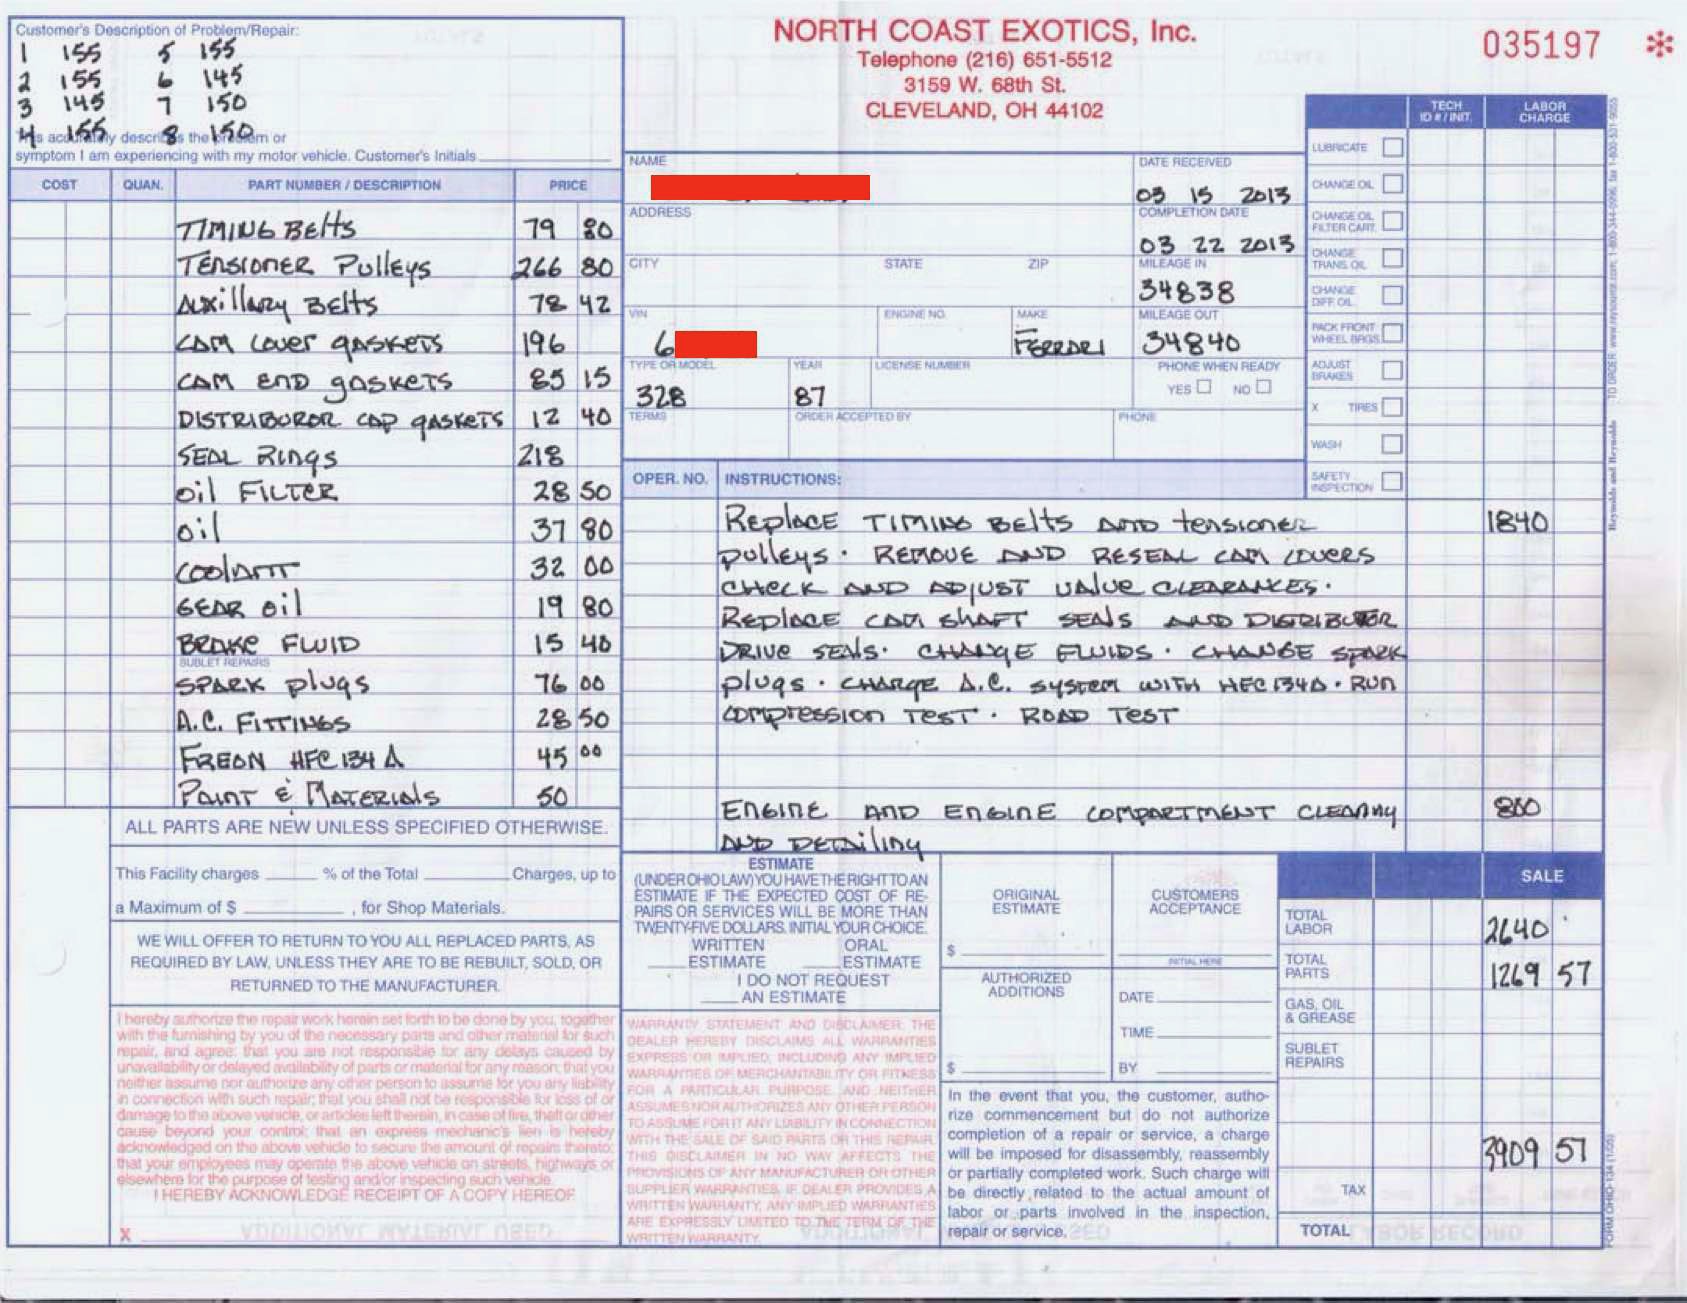 Customer's Description of Problem/Repair:
1 155 5 155
2 155 6 145
3 145 7 150
4 155 8 150
This accurately describes the problem or
symptom I am experiencing with my motor vehicle. Customer's Initials
NORTH COAST EXOTICS, Inc.
Telephone (216) 651-5512
3159 W. 68th St.
CLEVELAND, OH 44102
035197 *
COST QUAN. PART NUMBER / DESCRIPTION PRICE
TIMING BELTS 79 80
TENSIONER PULLEYS 266 80
AUXILLARY BELTS 78 42
CAM COVER GASKETS 196
CAM END GASKETS 85 15
DISTRIBUROR CAP GASKETS 12 40
SEAL RINGS 218
OIL FILTER 28 50
OIL 37 80
COOLANT 32 00
GEAR OIL 19 80
BRAKE FLUID 15 40
SUBLET REPAIRS
SPARK PLUGS 76 00
A.C. FITTINGS 28 50
FREON HFC 134 A 45 00
PAINT & MATERIALS 50
ALL PARTS ARE NEW UNLESS SPECIFIED OTHERWISE.
This Facility charges % of the Total Charges, up to
a Maximum of $ , for Shop Materials.
WE WILL OFFER TO RETURN TO YOU ALL REPLACED PARTS, AS
REQUIRED BY LAW, UNLESS THEY ARE TO BE REBUILT, SOLD, OR
RETURNED TO THE MANUFACTURER.
I hereby authorize the repair work herein set forth to be done by you, together
with the furnishing by you of the necessary parts and other material for such
repair, and agree: that you are not responsible for any delays caused by
unavailability or delayed availability of parts or material for any reason; that you
neither assume nor authorize any other person to assume for you any liability
in connection with such repair; that you shall not be responsible for loss of or
damage to the above vehicle, or articles left therein, in case of fire, theft or other
cause beyond your control; that an express mechanic's lien is hereby
acknowledged on the above vehicle to secure the amount of repairs thereto;
that your employees may operate the above vehicle on streets, highways or
elsewhere for the purpose of testing and/or inspecting such vehicle.
I HEREBY ACKNOWLEDGE RECEIPT OF A COPY HEREOF
X
NAME DATE RECEIVED
03 15 2013
ADDRESS COMPLETION DATE
03 22 2013
CITY STATE ZIP MILEAGE IN
34838
VIN ENGINE NO. MAKE MILEAGE OUT
6 FERRARI 34840
TYPE OR MODEL YEAR LICENSE NUMBER PHONE WHEN READY
328 87 YES NO
TERMS ORDER ACCEPTED BY PHONE
TECH ID # / INIT. LABOR CHARGE
LUBRICATE
CHANGE OIL
CHANGE OIL FILTER CART.
CHANGE TRANS. OIL
CHANGE DIFF. OIL
PACK FRONT WHEEL BRGS.
ADJUST BRAKES
X TIRES
WASH
SAFETY INSPECTION
OPER. NO. INSTRUCTIONS:
REPLACE TIMING BELTS AND TENSIONER 1840
PULLEYS. REMOVE AND RESEAL CAM COVERS
CHECK AND ADJUST VALVE CLEARANCES.
REPLACE CAM SHAFT SEALS AND DISTRIBUTER
DRIVE SEALS. CHANGE FLUIDS. CHANGE SPARK
PLUGS. CHARGE A.C. SYSTEM WITH HFC134A. RUN
COMPRESSION TEST. ROAD TEST
ENGINE AND ENGINE COMPARTMENT CLEANING 800
AND DETAILING
ESTIMATE
(UNDER OHIO LAW) YOU HAVE THE RIGHT TO AN
ESTIMATE IF THE EXPECTED COST OF RE-
PAIRS OR SERVICES WILL BE MORE THAN
TWENTY-FIVE DOLLARS. INITIAL YOUR CHOICE.
WRITTEN ESTIMATE ORAL ESTIMATE
I DO NOT REQUEST
AN ESTIMATE
WARRANTY STATEMENT AND DISCLAIMER: THE
DEALER HEREBY DISCLAIMS ALL WARRANTIES
EXPRESS OR IMPLIED, INCLUDING ANY IMPLIED
WARRANTIES OF MERCHANTABILITY OR FITNESS
FOR A PARTICULAR PURPOSE, AND NEITHER
ASSUMES NOR AUTHORIZES ANY OTHER PERSON
TO ASSUME FOR IT ANY LIABILITY IN CONNECTION
WITH THE SALE OF SAID PARTS OR THIS REPAIR.
THIS DISCLAIMER IN NO WAY AFFECTS THE
PROVISIONS OF ANY MANUFACTURER OR OTHER
SUPPLIER WARRANTIES. IF DEALER PROVIDES A
WRITTEN WARRANTY, ANY IMPLIED WARRANTIES
ARE EXPRESSLY LIMITED TO THE TERM OF THE
WRITTEN WARRANTY.
ORIGINAL ESTIMATE
$
CUSTOMERS ACCEPTANCE
INITIAL HERE
AUTHORIZED ADDITIONS
$
DATE
TIME
BY
In the event that you, the customer, autho-
rize commencement but do not authorize
completion of a repair or service, a charge
will be imposed for disassembly, reassembly
or partially completed work. Such charge will
be directly related to the actual amount of
labor or parts involved in the inspection,
repair or service.
SALE
TOTAL LABOR 2640
TOTAL PARTS 1269 57
GAS, OIL & GREASE
SUBLET REPAIRS
3909 57
TAX
TOTAL
Reynolds and Reynolds
FORM OHIO-134 (1/05)